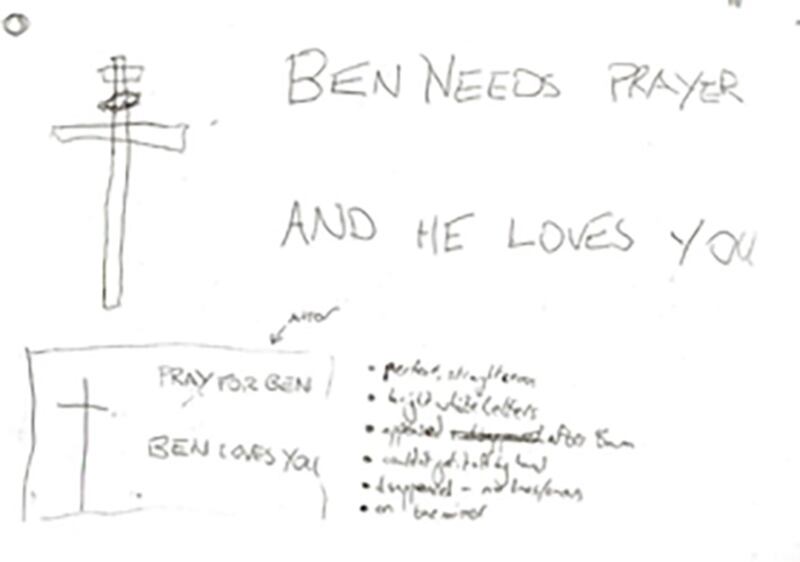 BEN NEEDS PRAYER
AND HE LOVES YOU
PRAY FOR BEN
BEN LOVES YOU
• perfect, straight
• bright white letters
• appeared after
• couldn't get it off by hand
• disappeared - no
• on the mirror